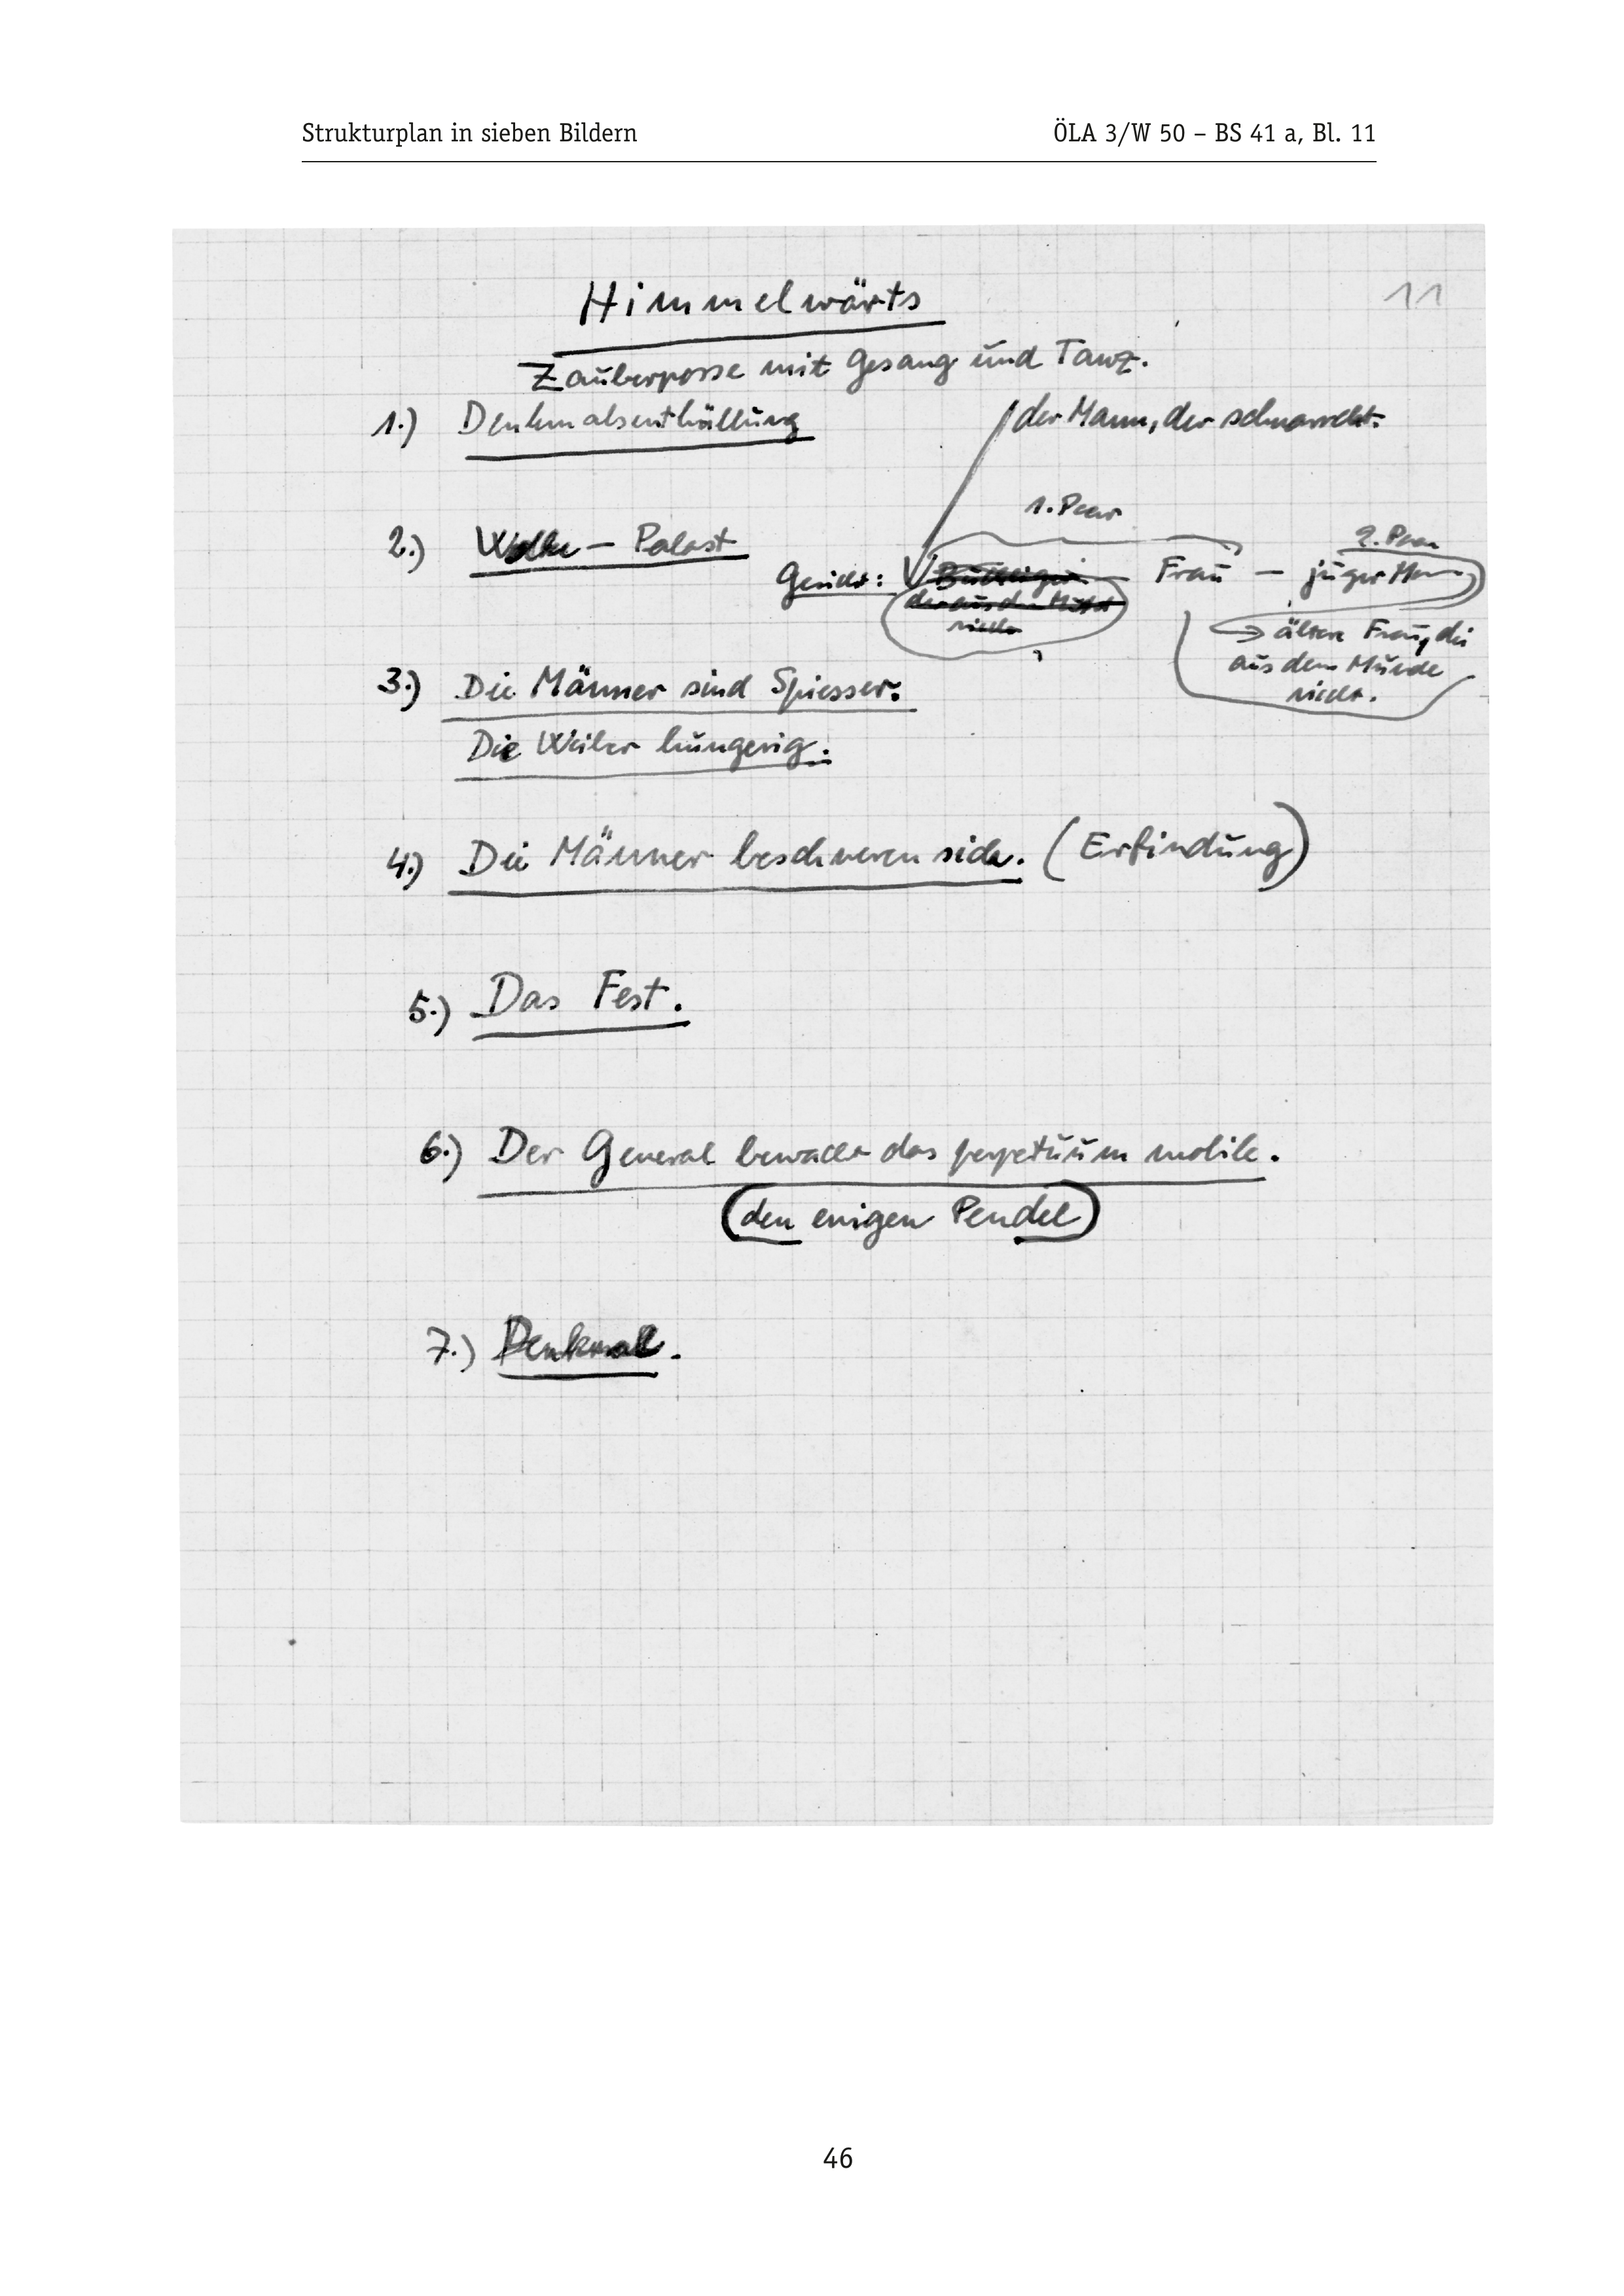 Strukturplan in sieben Bildern ÖLA 3/W 50 – BS 41 a, Bl. 11
11
Himmelwärts
Zauberposse mit Gesang und Tanz.
1.) Denkmalsenthüllung
der Mann, der schnarcht.
1. Paar
2. Paar
2.) Wolke – Palast
Gericht: Frau – juger Mann
der aus dem Mund
riecht
ältere Frau, die
aus dem Munde
riecht.
3.) Die Männer sind Spiesser.
Die Weiber hungerig.
4.) Die Männer beschweren sich. (Erfindung)
5.) Das Fest.
6.) Der General bewacht das perpetuum mobile.
(den ewigen Pendel)
7.) Denkmal.
46